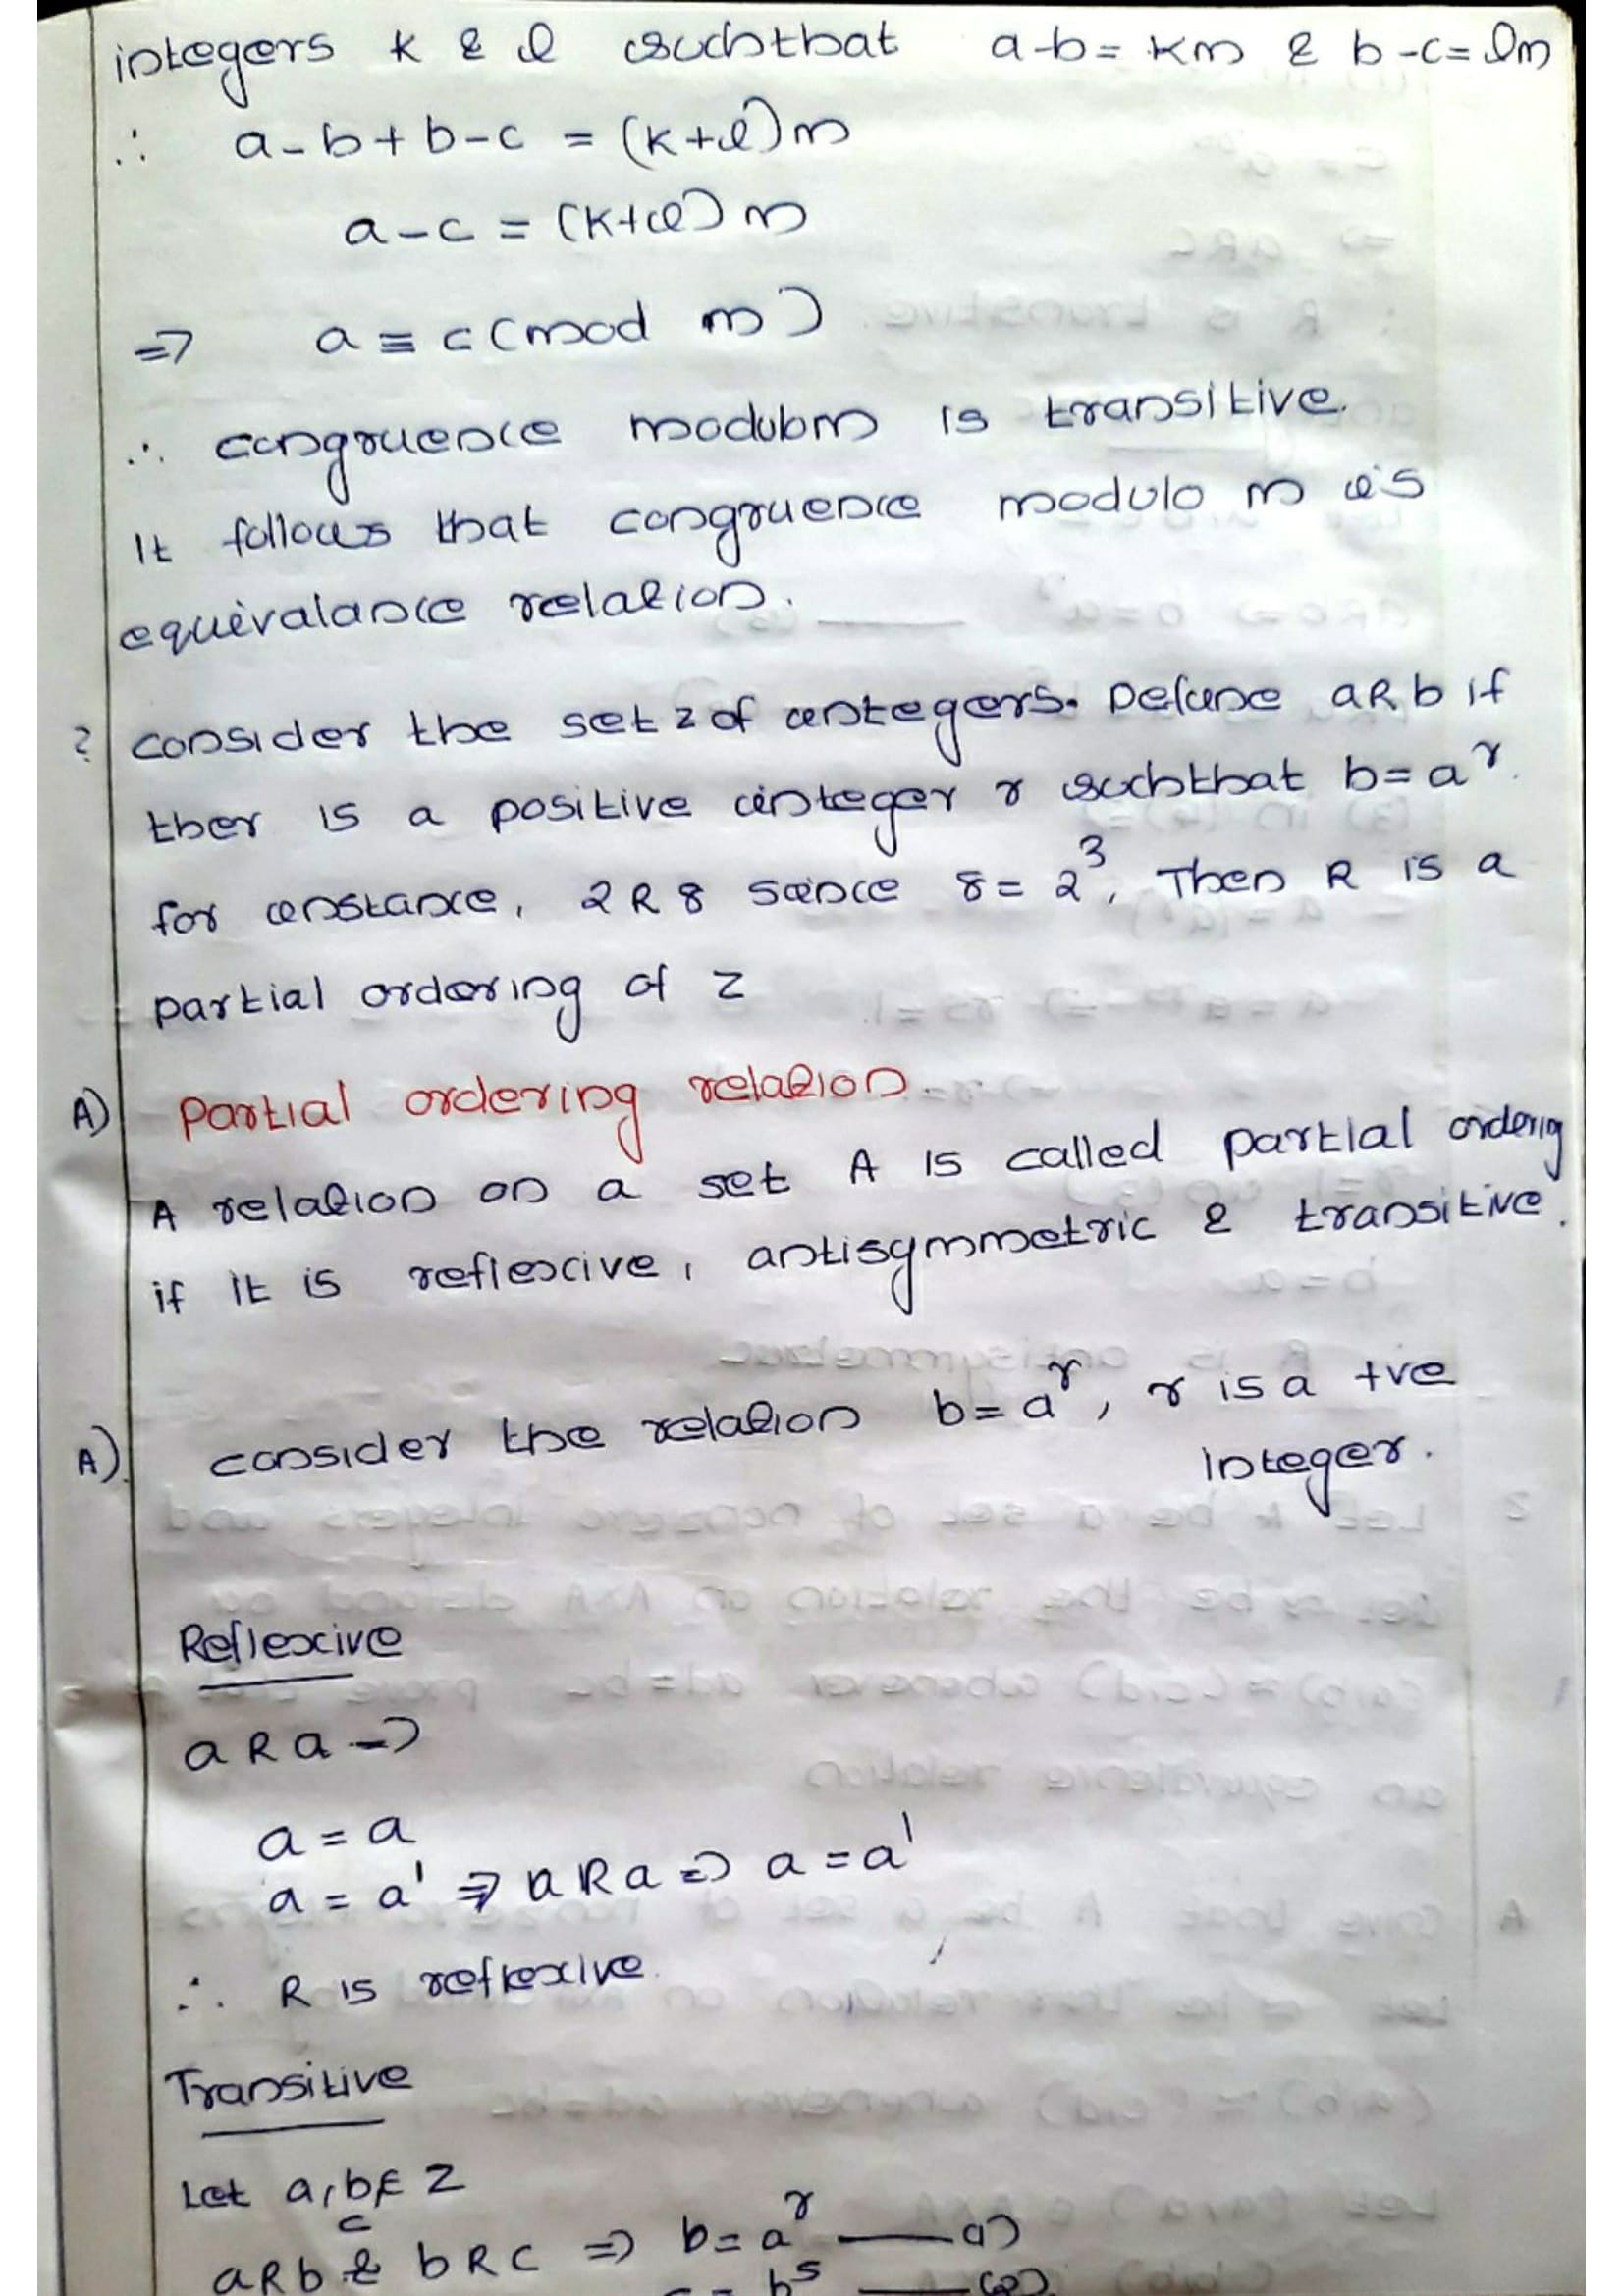 integers k & l suchthat a-b = km & b-c = lm
∴ a-b+b-c = (k+l)m
a-c = (k+l)m
⇒ a ≡ c (mod m)
∴ congruence modulom is transitive.
It follows that congruence modulo m is
equivalance relation.
? consider the set z of integers. Define aRb if
ther is a positive integer r suchthat b = a^r.
for instance, 2R8 since 8 = 2^3, Then R is a
partial ordering of z
A) Partial ordering relation.
A relation on a set A is called partial ordering
if it is reflexive, antisymmetric & transitive.
A). consider the relation b = a^r, r is a +ve
integer.
Reflexive
aRa ⇒
a = a
a = a^1 ⇒ aRa ⇒ a = a^1
∴ R is reflexive.
Transitive
Let a,b,c ∈ Z
aRb & bRc ⇒ b = a^r —— (1)
c = b^s —— (2)